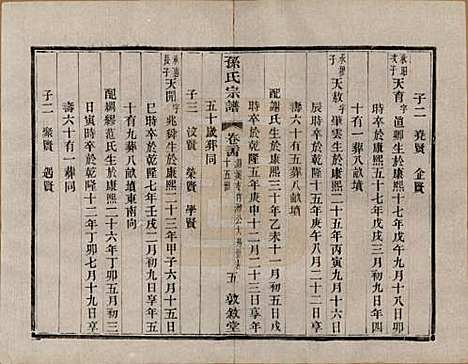 子二 堯賢 企賢
承聯次子
天育字道卿生於康熙二十六年丁卯九月十八日卯
時卒於康熙五十七年戊戌三月初九日年四
十有一葬八畝墳
承禮子
天敘字肇雲生於康熙二十五年丙寅九月初九日
辰時卒於乾隆十五年庚申八月二十二日享
壽六十有五葬八畝墳
配謝氏生於康熙三十年乙未十一月初四日
時卒於乾隆五年庚申十二月二十三日享年
五十歲葬同
孫氏宗譜
卷之四
十五世
五
敦敘堂
子三 汶賢 學賢
天開字兆舜生於康熙二十三年甲子六月十五日
巳時卒於乾隆七年壬戌二月初九日享年五
十有九葬八畝墳東南向
配繼范氏生於康熙二十六年丁卯五月初三
日寅時卒於乾隆十二年丁卯七月十九日享
壽六十有一葬同
子二 聚賢 遇賢